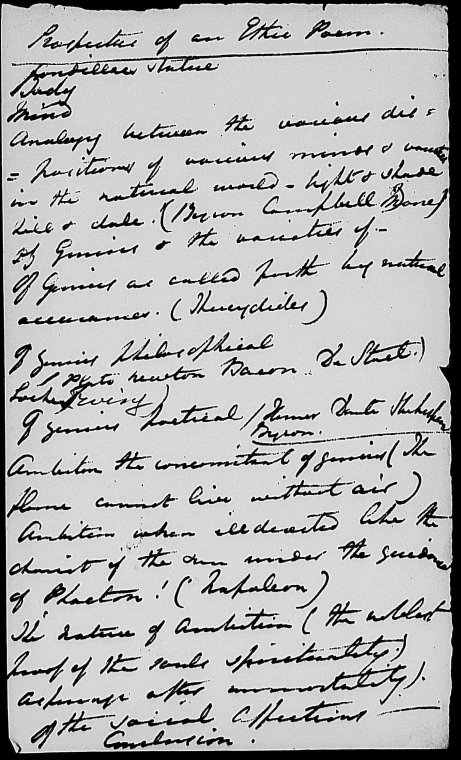 Prospectus of an Ethic Poem.
Condillacs Statue
Body
Mind
Analogy between the various dis=
=positions of various minds & varieties
in the natural world - light & shade
hill & dale. (Byron Campbell Moore)
Of Genius & the varieties of -
Of Genius as called forth by natural
occurrances. (Thucydides)
Of genius philosophical
(Plato Newton Bacon De Stael.)
Locke
Of genius poetical (Homer Dante Shakespear
Byron.
Ambition the concomitant of genius (The
flame cannot live without air)
Ambition when illdirected like the
chariot of the sun under the guidance
of Phaeton! (Napoleon)
The nature of Ambition (the noblest
proof of the souls spirituality.)
after immortality).
Of the social Affections
Conclusion.